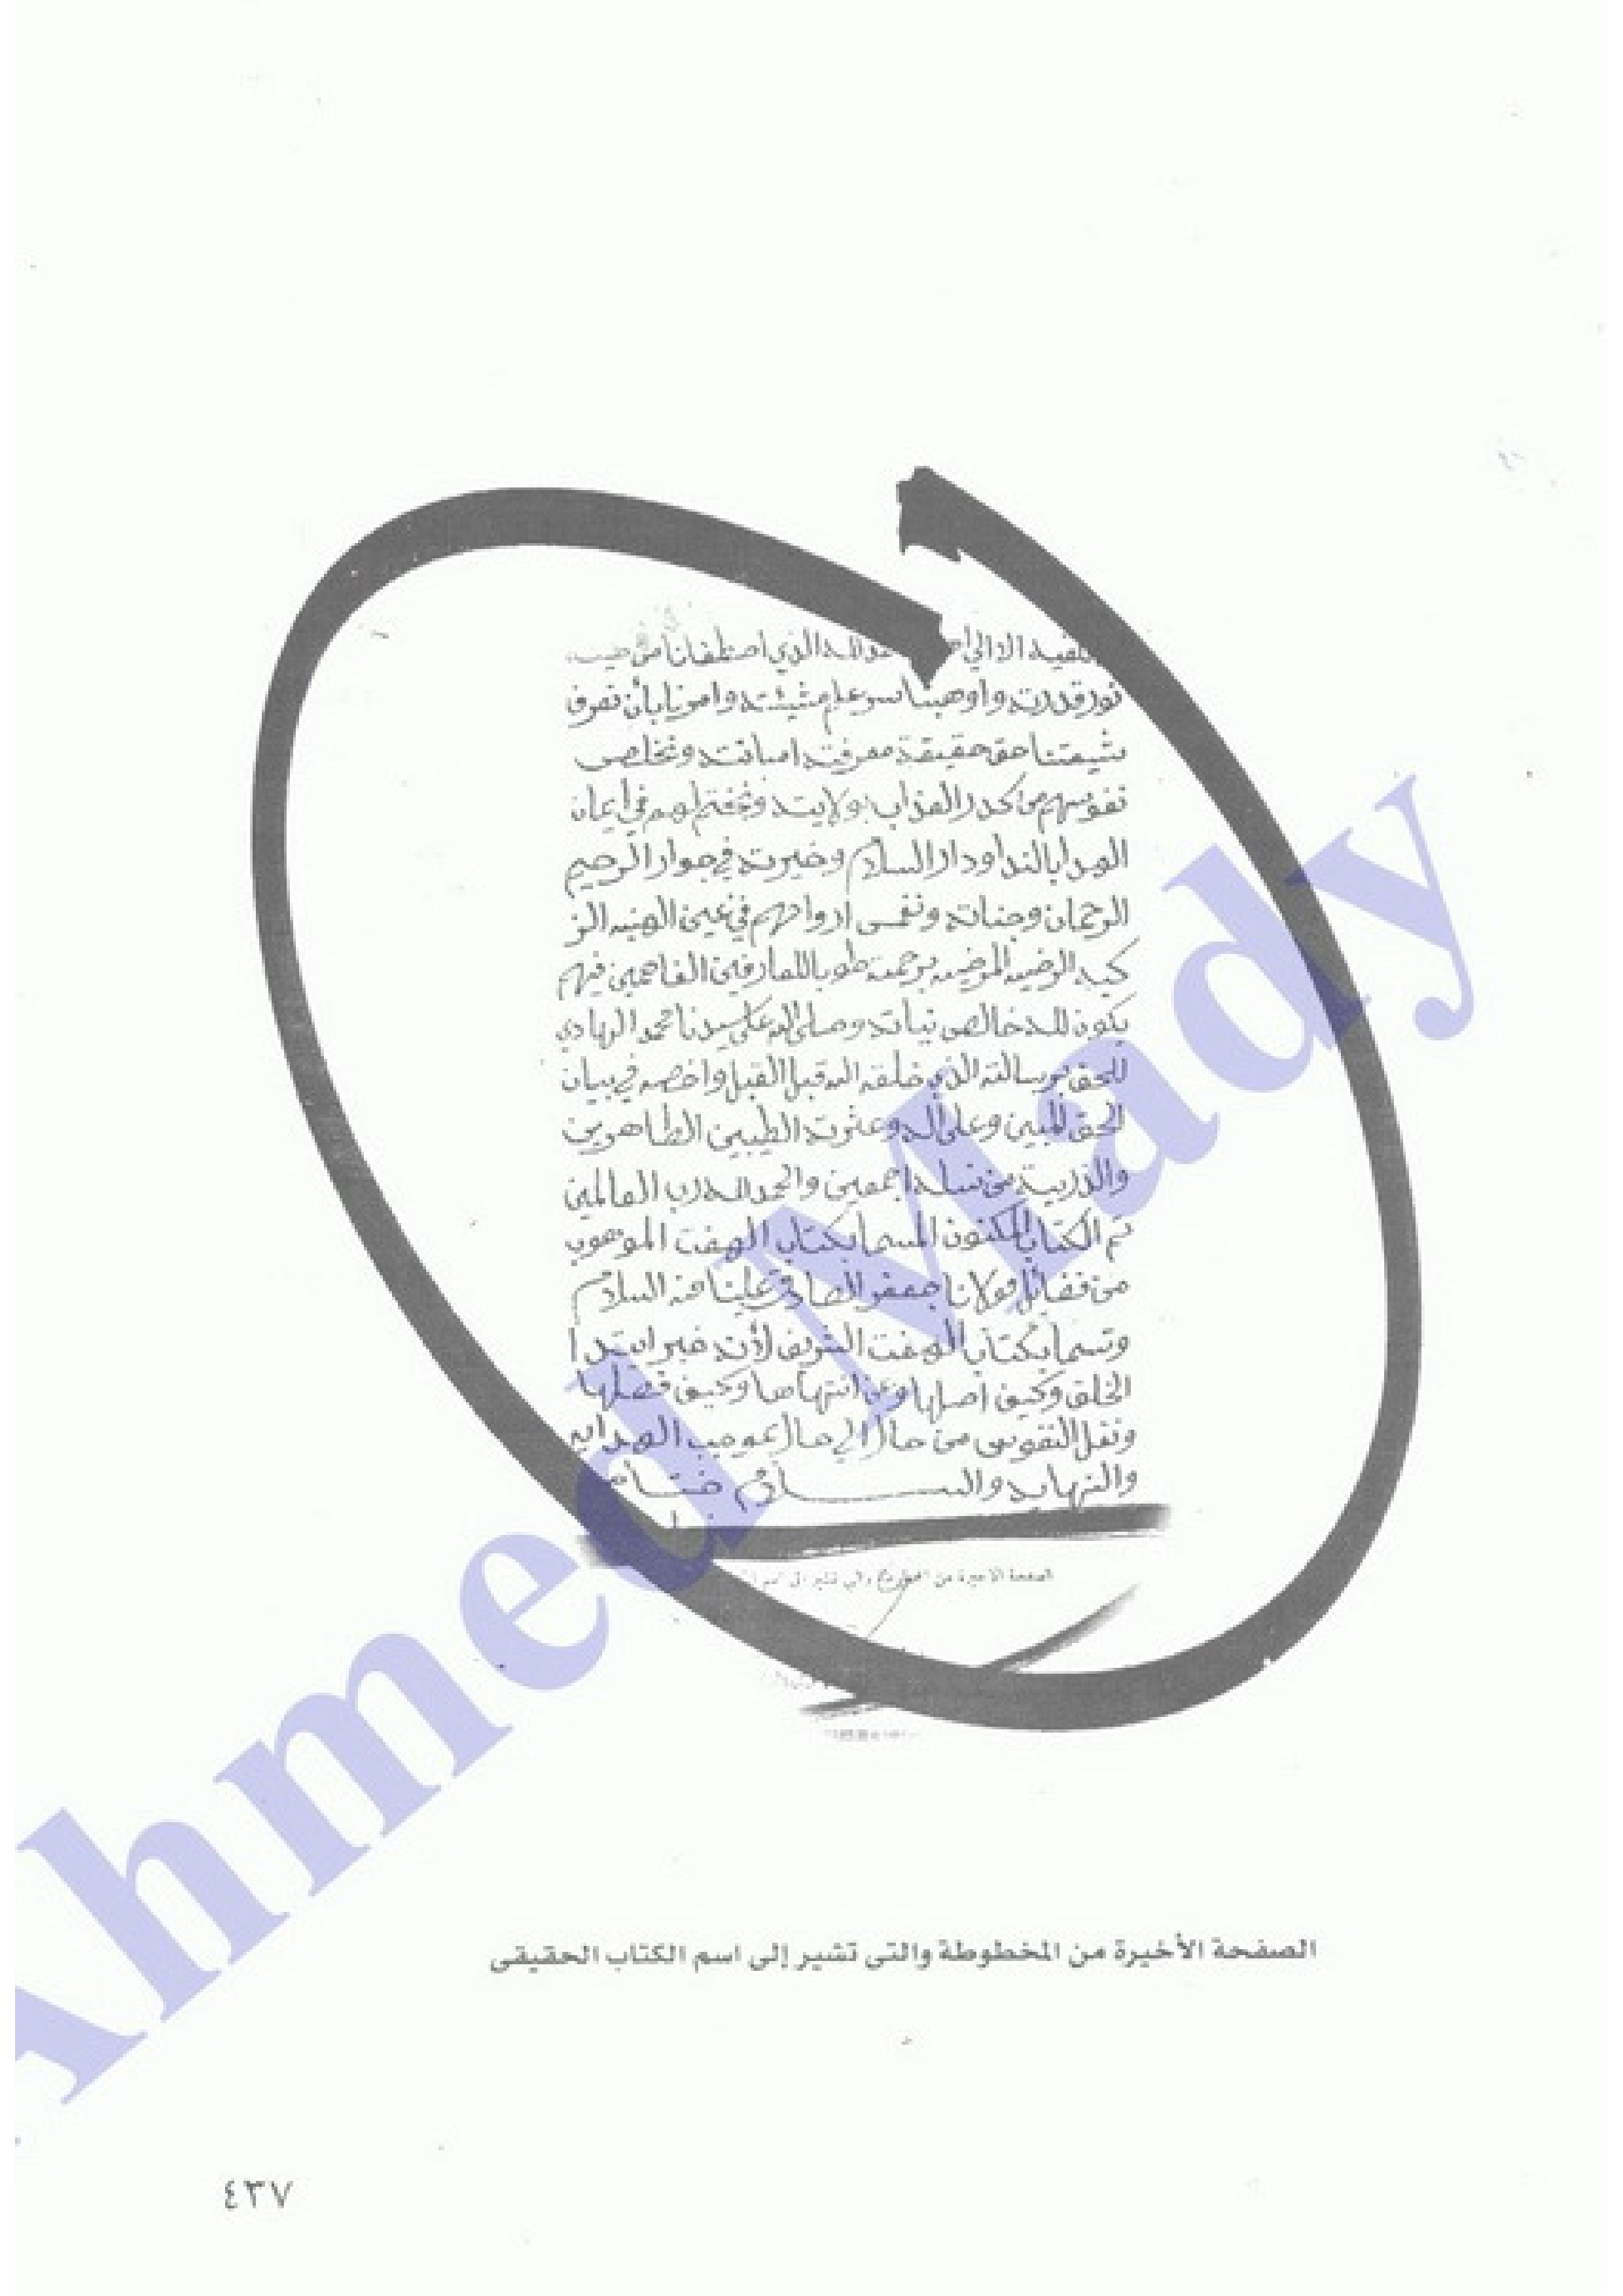 الا الي الله الذي اصطفانا من
نور قدرته واوهبنا سر علم مشيئته وامرنا بأن نعرف
شيعتنا حق حقيقة معرفت اثباته ونخلص
نفوسهم من كدر العذاب بولايته ونختم لهم في ايمان
الهدا بالندا ودار السلام وخيرته في جوار الرحيم
الرحمان وجناته ونغمس ارواحهم في عين الهنيه الز
كيه الرضيه المرضيه برحمته طوبا للعارفين الفاحمين فيهم
يكون لله خالص نياته وصلى الله على سيدنا محمد الهادي
للحق برسالته الذي خلقه الله قبل القبل واخصه في بيان
الحق المبين وعلى اله وعثرته الطيبين الطاهرين
والذرية من نسله اجمعين والحمد لله رب العالمين
تم الكتاب المكنون المسما بكتاب الهفت الموهوب
من فضائل مولانا جعفر الصادق علينا منه السلام
وتسما بكتاب الهفت الشريف لأنه خبر ابتدا
الخلق وكيف اصلها وعن انتهاها وكيف فصلها
ونقل النفوس من حال الي حال بموجب الهدايه
والنهايه والسلام ختام
الصفحة الاخيرة من المخطوطة والتي تشير الى اسم
الصفحة الأخيرة من المخطوطة والتى تشير إلى اسم الكتاب الحقيقى
٤٣٧
Ahmed Mady